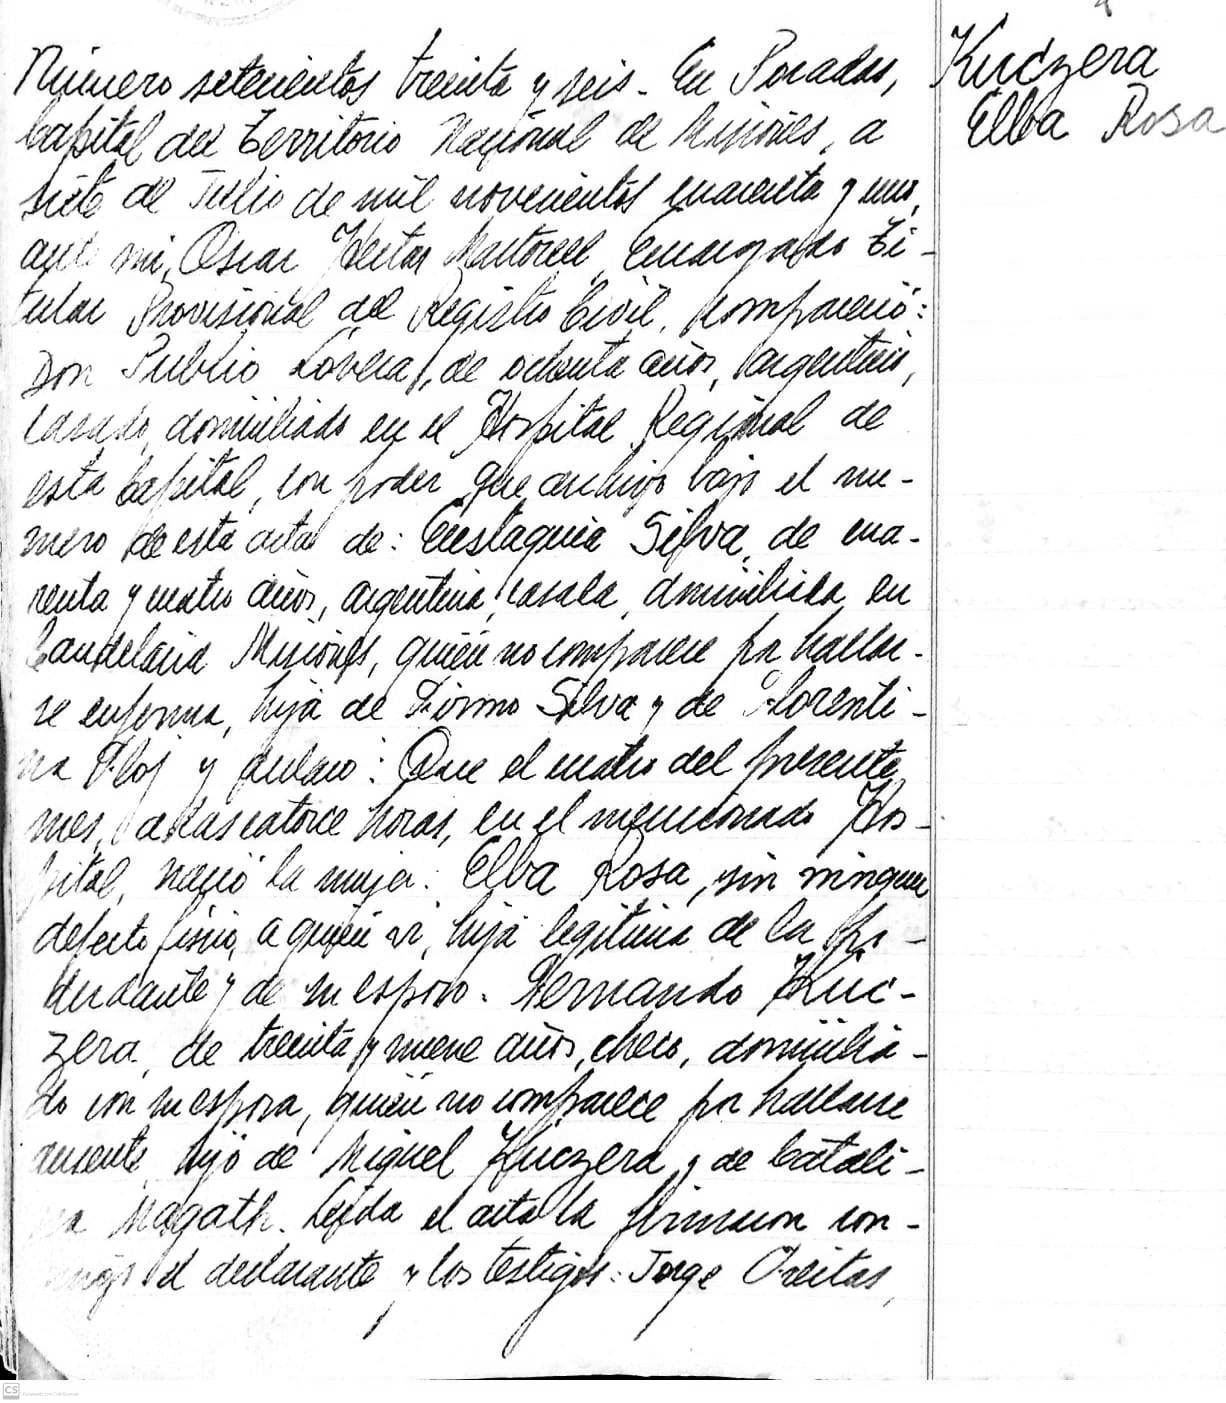 Kuczera
Elba Rosa
Número setecientos treinta y seis. En Posadas,
Capital del Territorio Nacional de Misiones, a
siete de Julio de mil novecientos cuarenta y uno,
ante mi, Oscar Hector Martorell, Encargado Ti-
tular Provisional del Registro Civil, compareció:
Don Publio Lovera, de ochenta años, argentino,
casado, domiciliado en el Hospital Regional de
esta Capital, con poder que archivo bajo el nu-
mero de esta acta de: Eustaquia Silva, de cua-
renta y cuatro años, argentina, casada, domiciliada en
Candelaria Misiones, quién no comparece por hallar-
se enferma, hija de Firmo Silva y de Florenti-
na Flos y declaró: Que el cuatro del presente
mes, a las catorce horas, en el mencionado Hos-
pital, nació la mujer: Elba Rosa, sin ningun
defecto físico, a quién vi, hija legitima de la po-
derdante y de su esposo. Fernando Kuc-
zera, de treinta y nueve años, checo, domicilia-
do con su esposa, quién no comparece por hallarse
ausente, hijo de Miguel Kuczera y de Catali-
na Magath. Leída el acta la firmaron con-
migo el declarante y los testigos: Jorge Freitas,